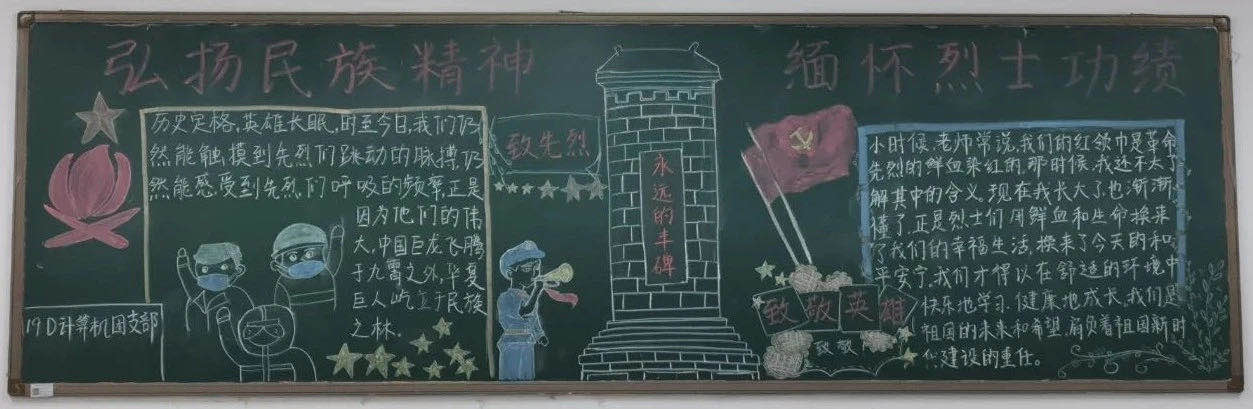 弘扬民族精神
缅怀烈士功绩
历史定格,英雄长眠,时至今日,我们仍
然能触摸到先烈们跳动的脉搏,仍
然能感受到先烈们呼吸的频率,正是
因为他们的伟
大,中国巨龙飞腾
于九霄之外,华夏
巨人屹立于民族
之林.
19D计算机团支部
致先烈
永远的丰碑
致敬英雄
致敬
小时候,老师常说,我们的红领巾是革命
先烈的鲜血染红的,那时候,我还不大了
解其中的含义,现在我长大了,也渐渐
懂了,正是烈士们用鲜血和生命换来
了我们的幸福生活,换来了今天的和
平安宁,我们才得以在舒适的环境中
快乐地学习,健康地成长,我们是
祖国的未来和希望,肩负着祖国新时
代建设的重任。